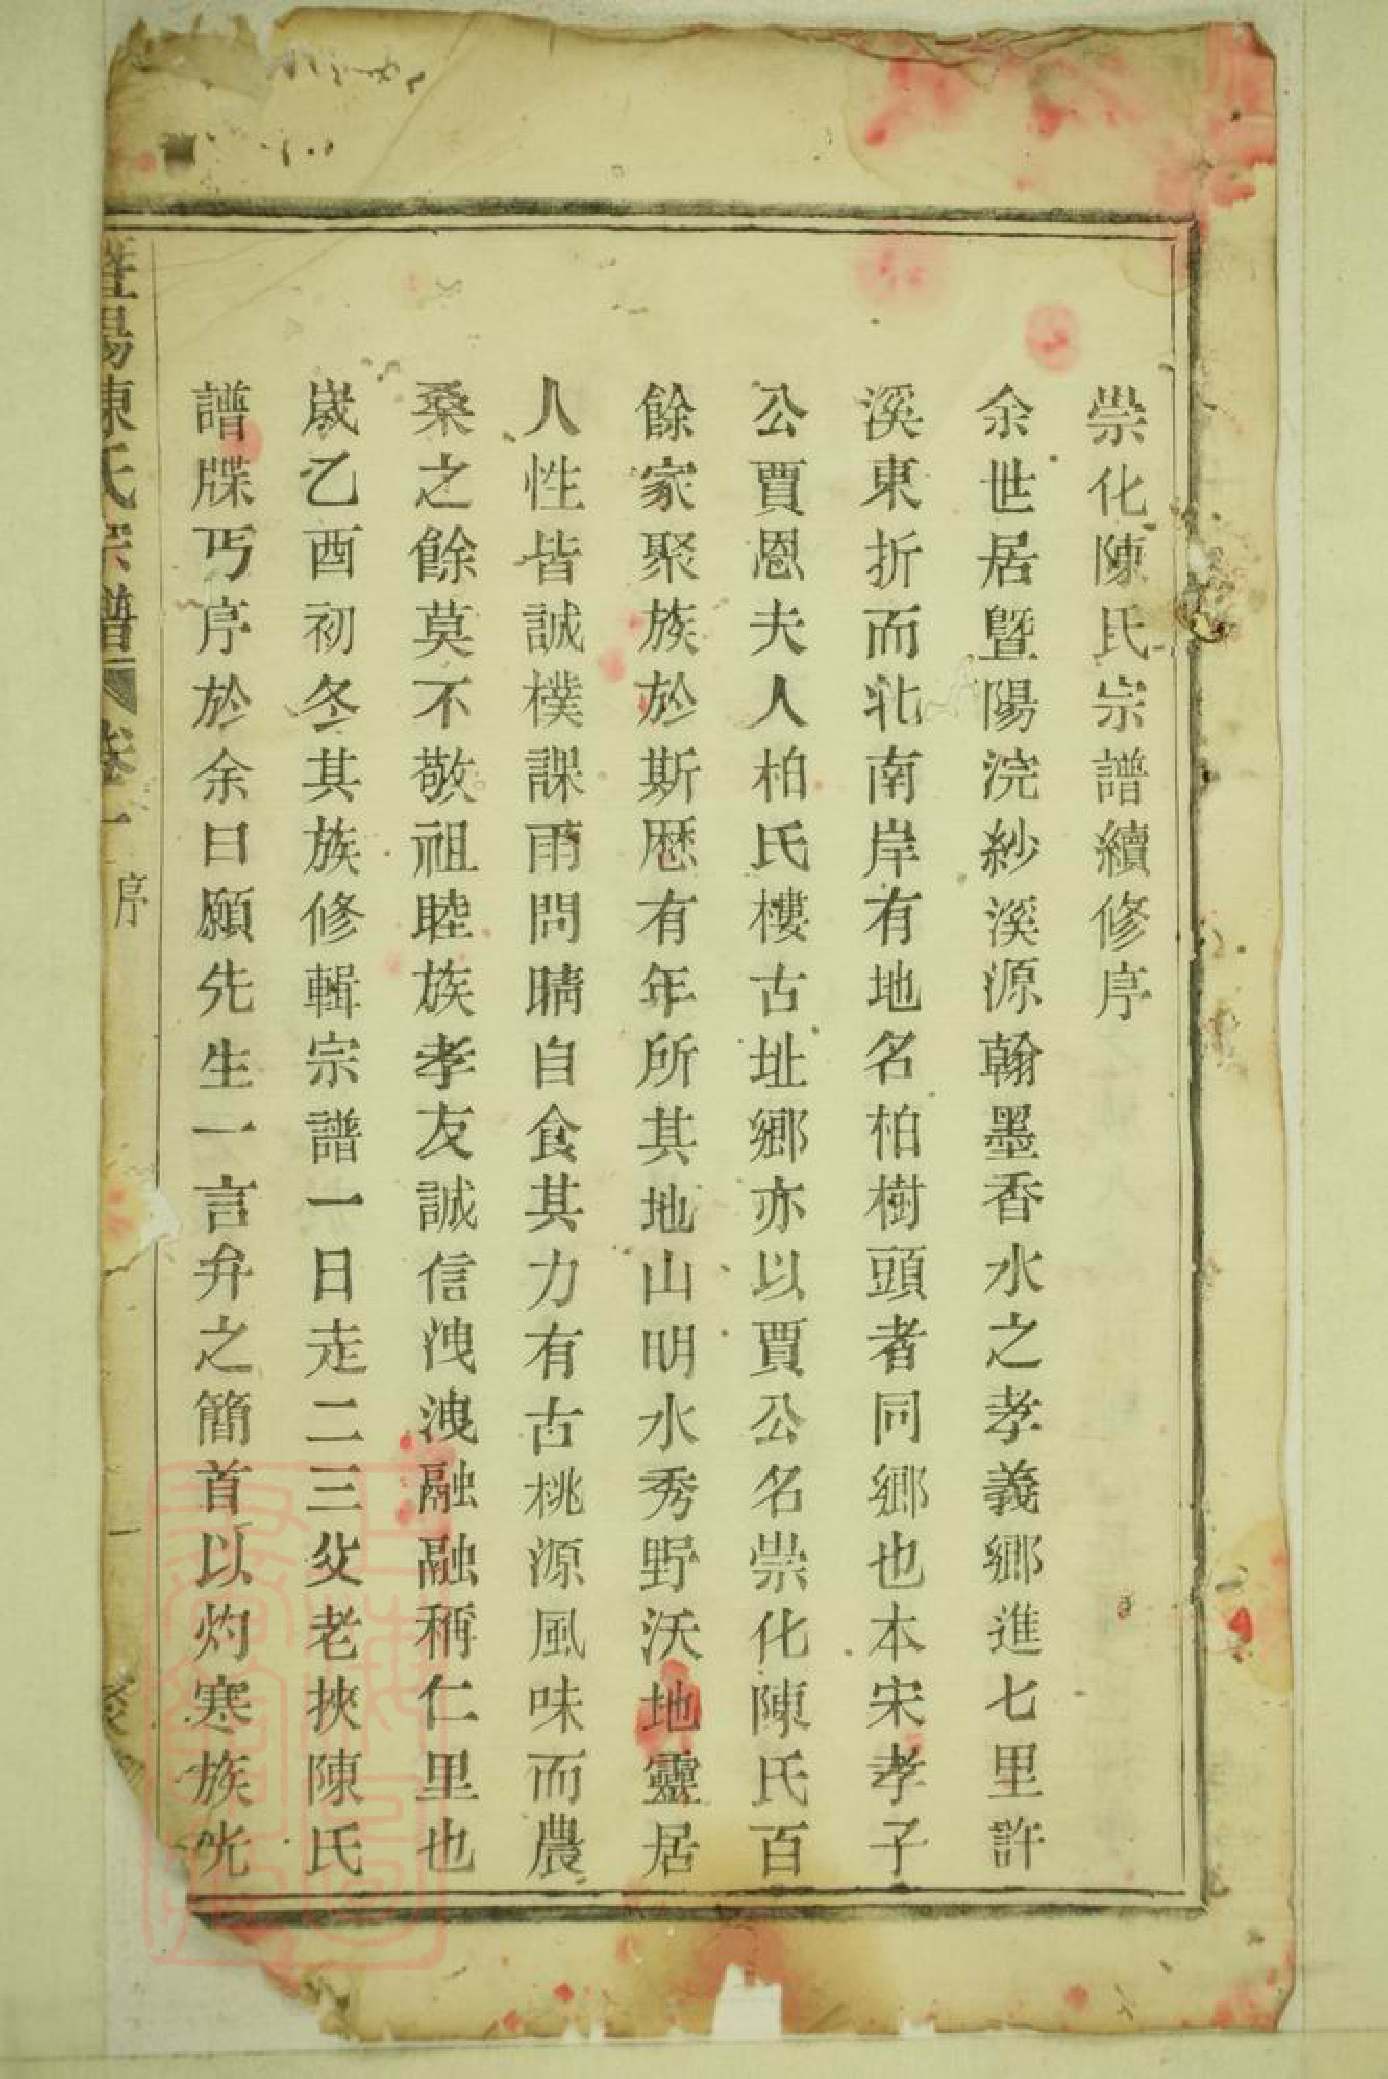 崇化陳氏宗譜續修序
余世居暨陽浣紗溪源翰墨香水之孝義鄉進七里許
溪東折而北南岸有地名柏樹頭者同鄉也本宋孝子
公賈恩夫人柏氏樓古址鄉亦以賈公名崇化陳氏百
餘家聚族於斯歷有年所其地山明水秀野沃地靈居
人性皆誠樸課雨問晴自食其力有古桃源風味而農
桑之餘莫不敬祖睦族孝友誠信洩洩融融稱仁里也
歲乙酉初冬其族修輯宗譜一日走二三父老挾陳氏
譜牒丐序於余曰願先生一言弁之簡首以灼寒族光
暨陽陳氏宗譜 卷一 序